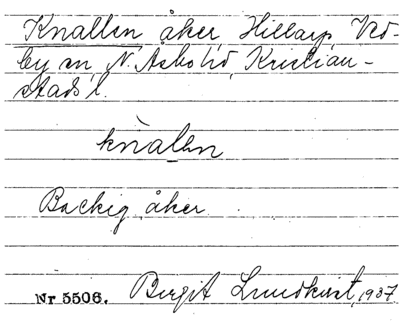 Knallen åker Hillarp Ved-
by sn N. Åsbo hd, Kristian-
stads l.
knallen
Backig åker.
Nr 5506. Birgit Lundkvist, 1937